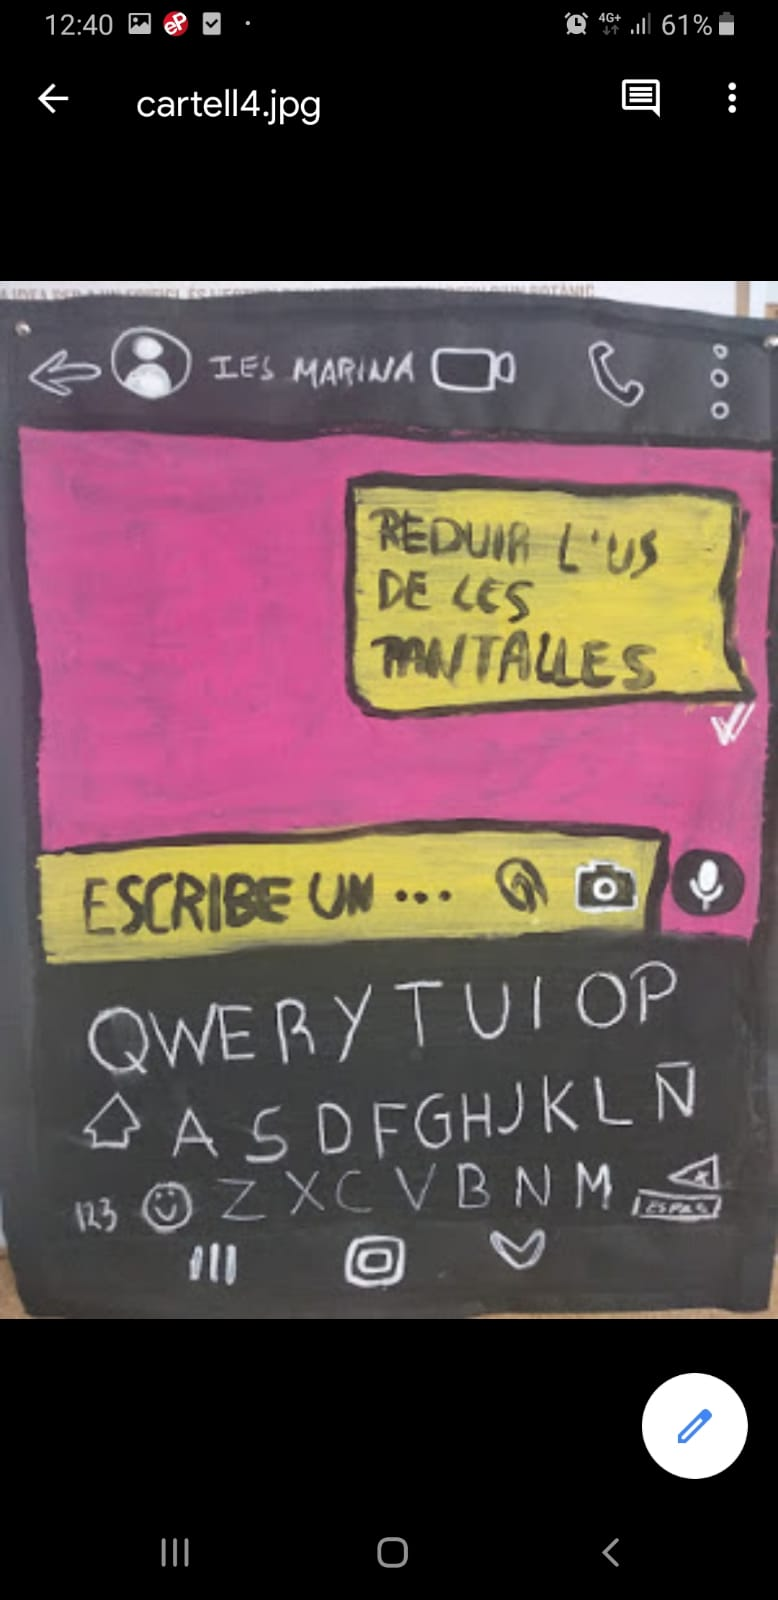 12:40
4G+
61%
cartell4.jpg
IES MARINA
REDUIR L'US
DE LES
PANTALLES
ESCRIBE UN ...
QWERYTUIOP
ASDFGHJKLÑ
123 ZXCVBNM